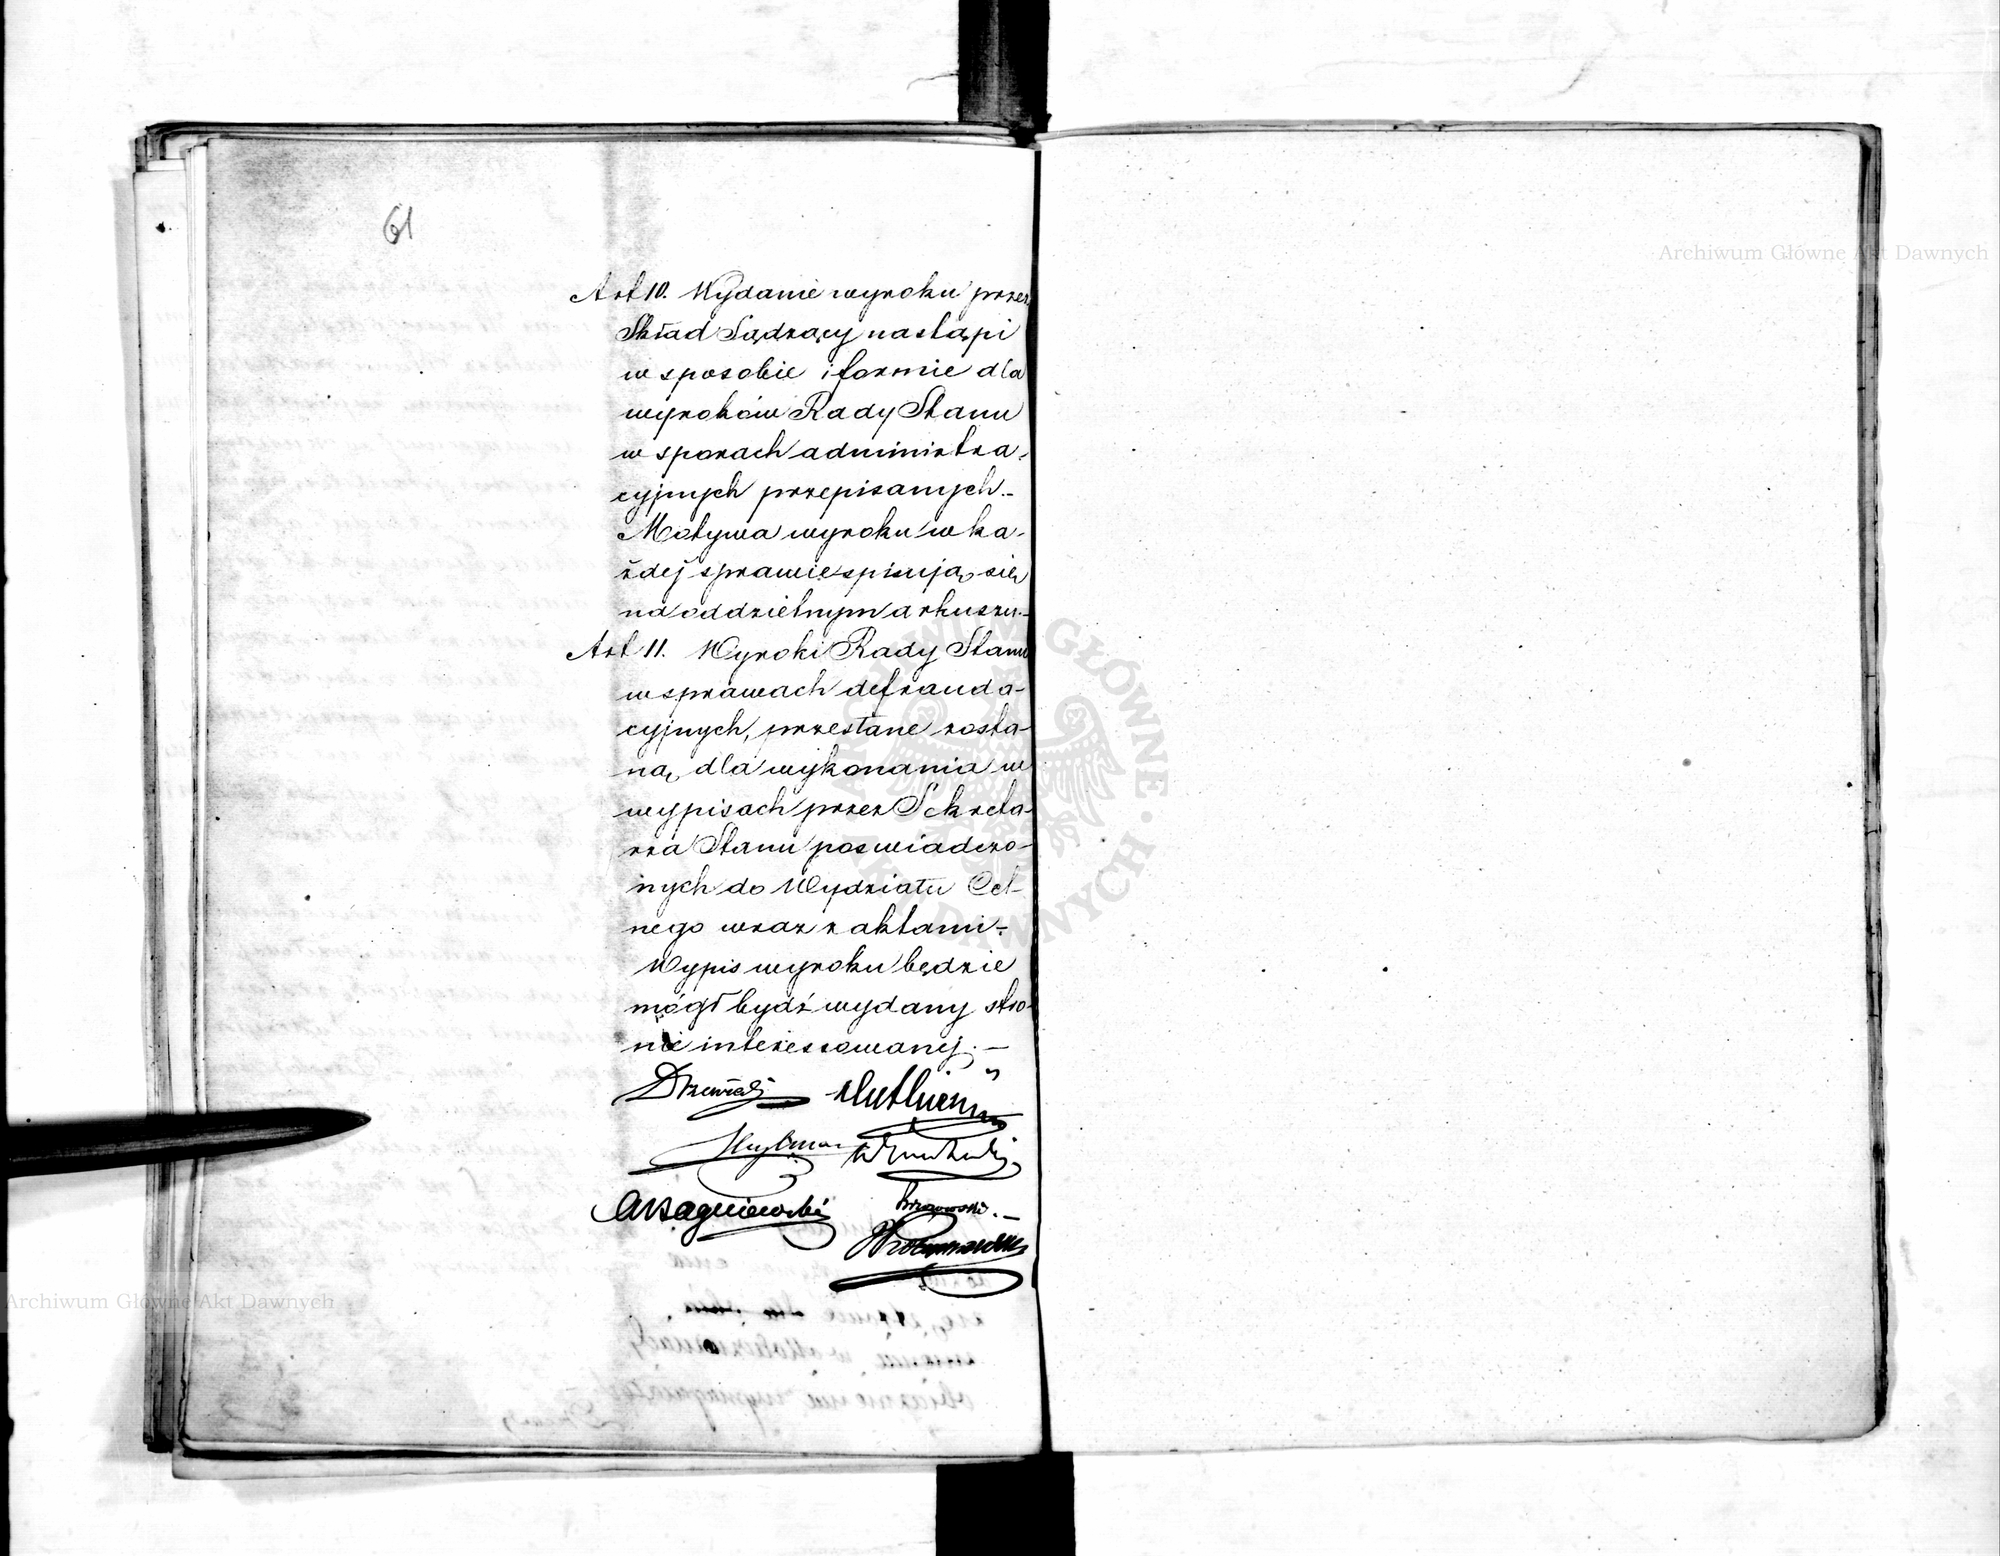 61
Art 10. Wydanie wyroku przez
Skład Sądzący nastąpi
w sposobie i formie dla
wyroków Rady Stanu
w sporach administra-
cyjnych przepisanych.-
Motywa wyroku w ka-
żdej sprawie spisują się
na oddzielnym arkuszu.-
Art 11. Wyroki Rady Stanu
w sprawach defrauda-
cyjnych, przesłane zosta-
ną, dla wykonania w
wypisach przez Sekreta-
rza Stanu poswiadczo-
nych do Wydziału Cel-
nego wraz z aktami.-
Wypis wyroku będzie
mógł bydź wydany stro-
nie interessowanej.-
Archiwum Główne Akt Dawnych
Archiwum Główne Akt Dawnych